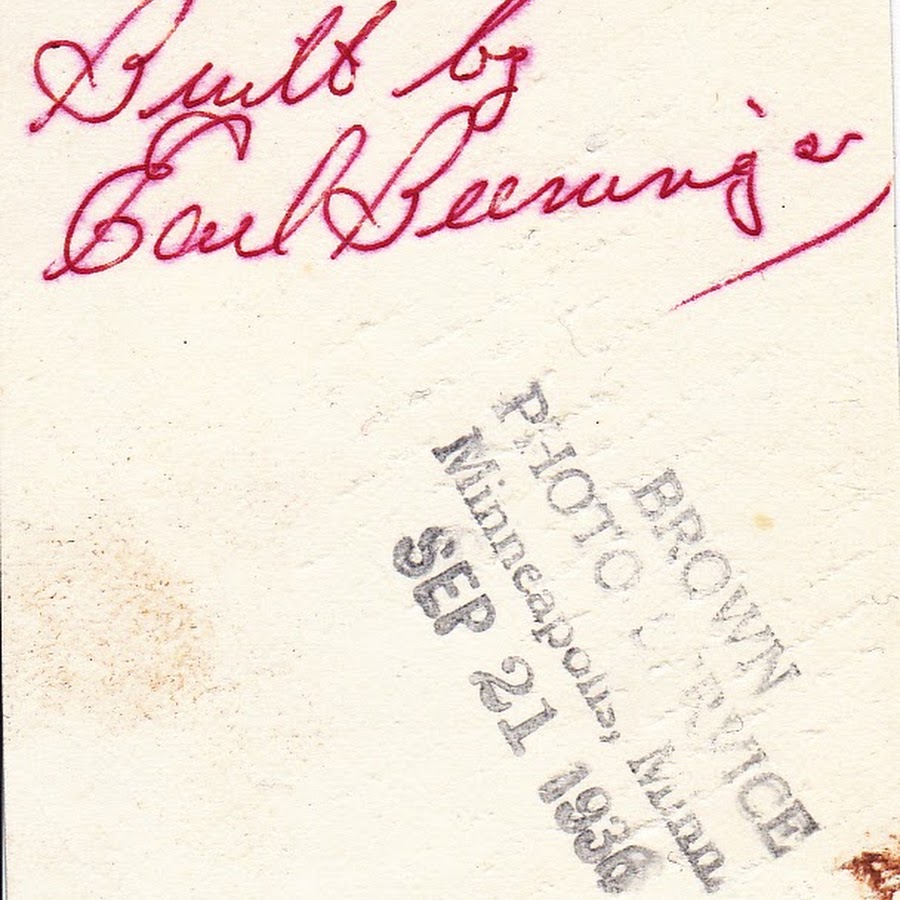 Built by
Earl
BROWN
PHOTO SERVICE
Minneapolis, Minn
SEP 21 1936